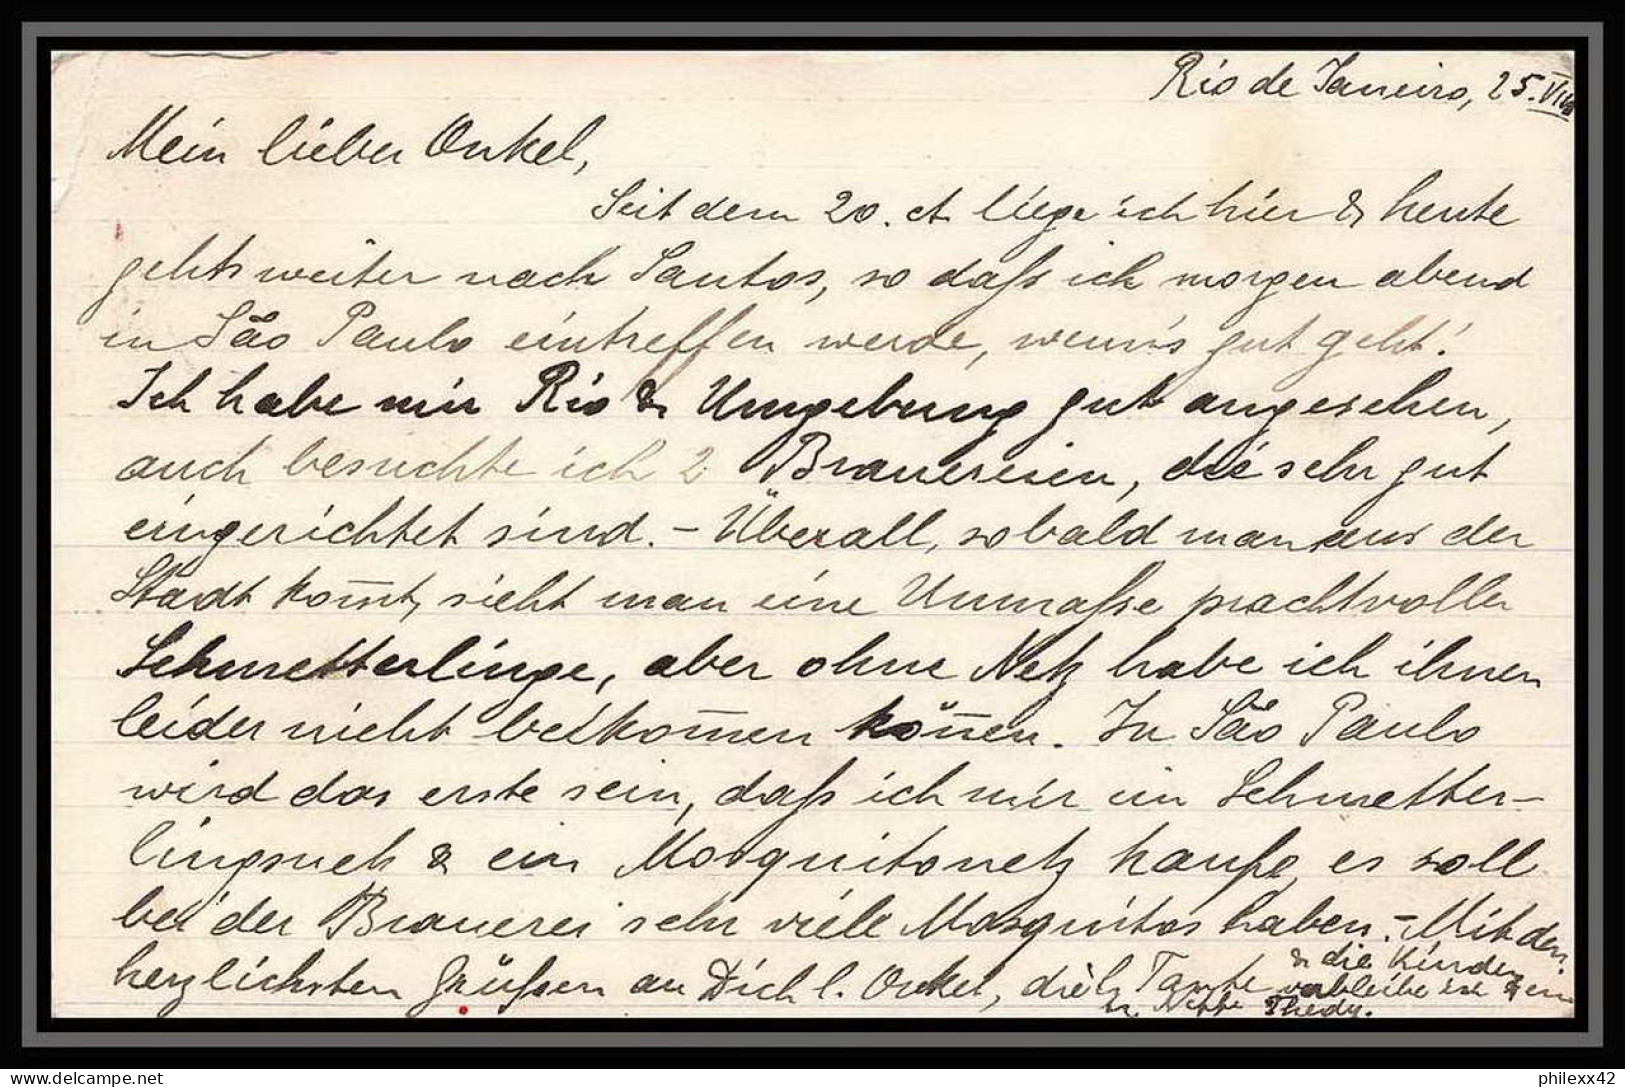 Rio de Janeiro, 25. VIII
Mein lieber Onkel,
Seit dem 20. ct. liege ich hier & heute
gehts weiter nach Santos, so daß ich morgen abend
in São Paulo eintreffen werde, wenn's gut geht!
Ich habe mir Rio & Umgebung gut angesehen,
auch besuchte ich 2 Brauereien, die sehr gut
eingerichtet sind. - Überall, sobald man aus der
Stadt kom̅t, sieht man eine Unmaße prachtvoller
Schmetterlinge, aber ohne Netz habe ich ihnen
leider nicht beikom̅en kön̅en. In São Paulo
wird das erste sein, daß ich mir ein Schmetter-
lingsnetz & ein Mosquitonetz kaufe, es soll
bei der Brauerei sehr viele Mosquitos haben. - Mit den
herzlichsten Grüßen an Dich l. Onkel, die l. Tante & die Kinder
verbleibe ich Dein
Neffe Thedy.
philexx42